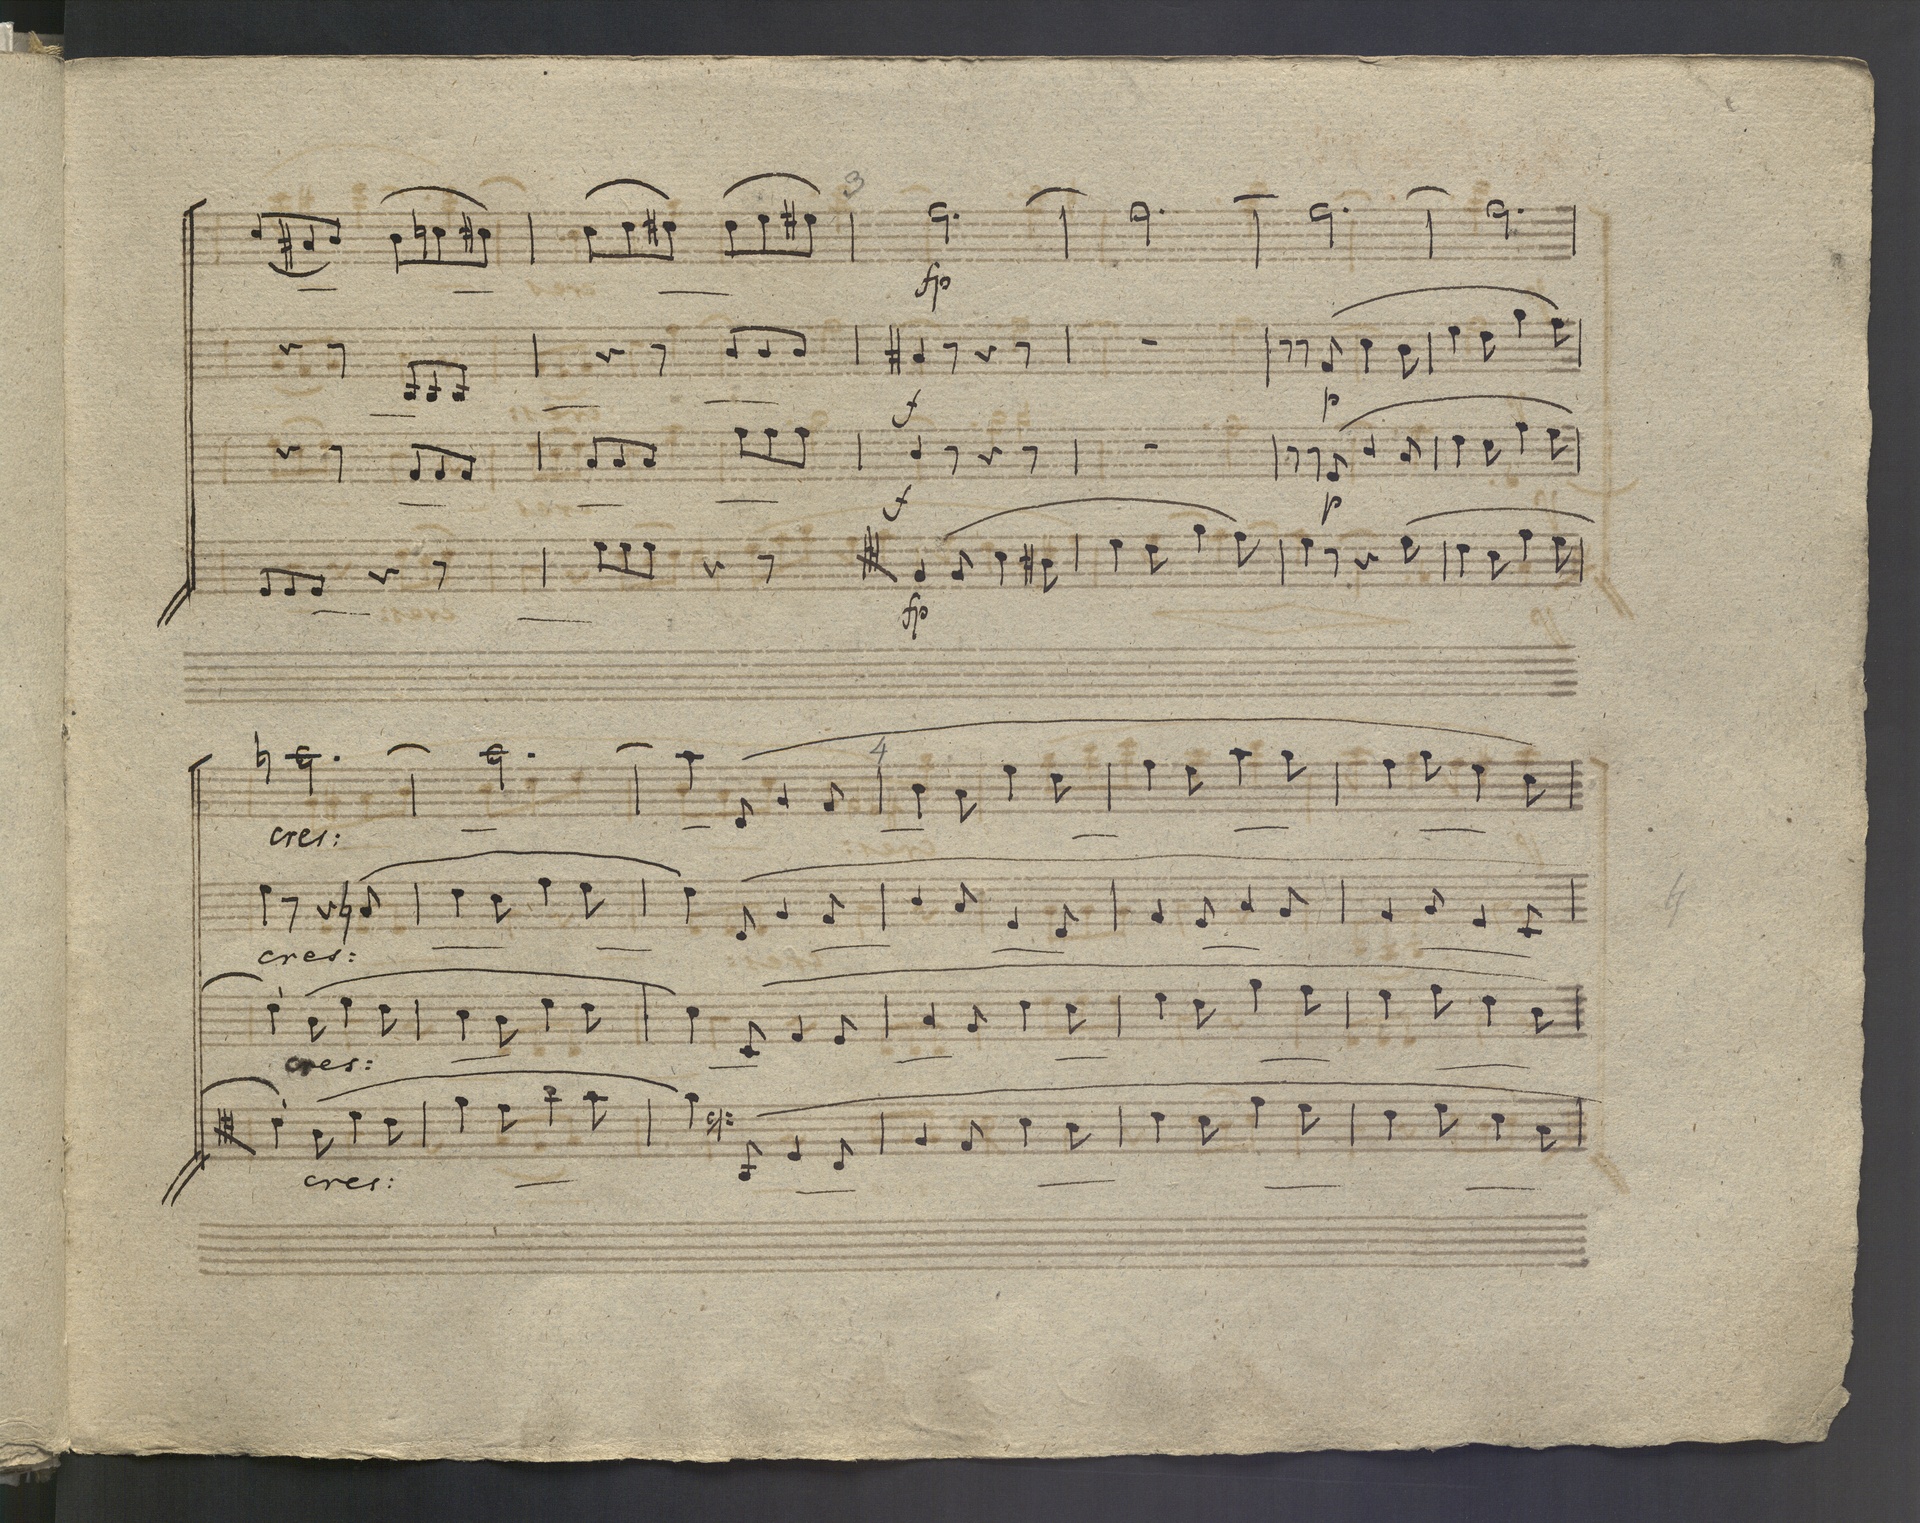 3
fp
f p
f p
fp
4
cres:
cres:
4
cres:
cres: